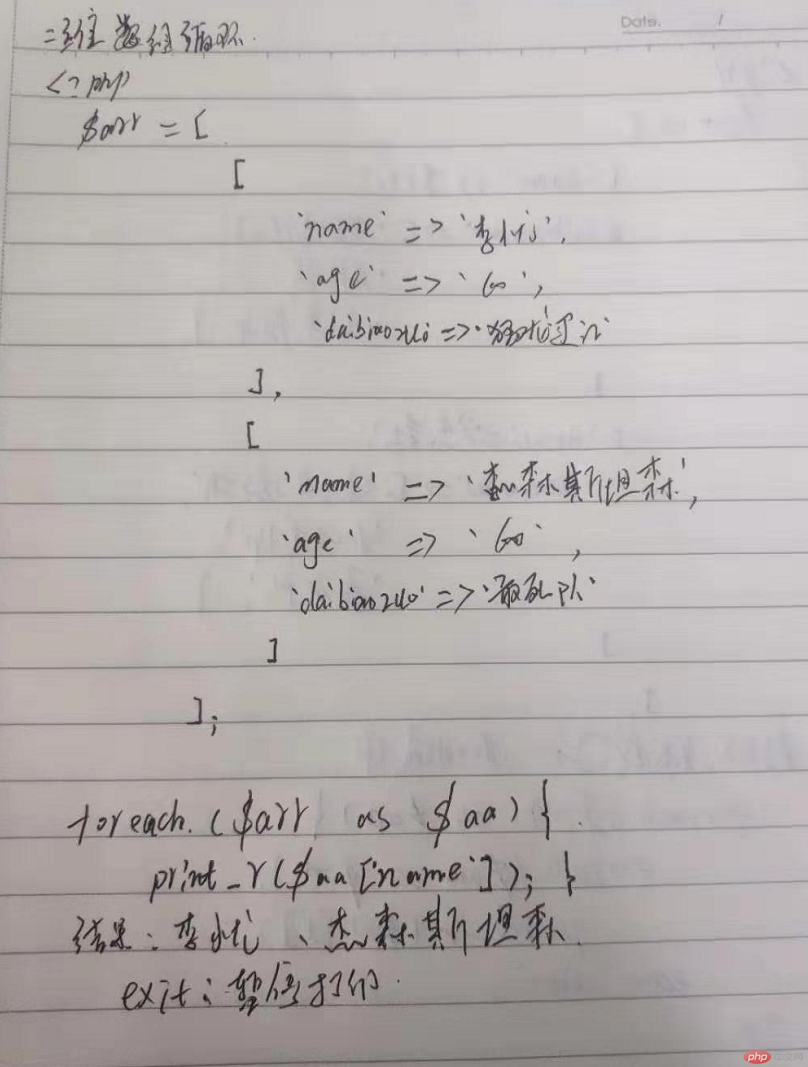 Date. /
二维数组循环.
<?php
$arr = [
[
'name' => '李小龙',
'age' => '60',
'daibiaozuo => '猛龙过江'
],
[
'name' => '杰森斯坦森',
'age' => '60',
'daibiaozuo' => '敢死队'
]
];
foreach.($arr as $aa){
print_r($aa['name']); }
结果: 李小龙、杰森斯坦森.
exit; 暂停打印.
php